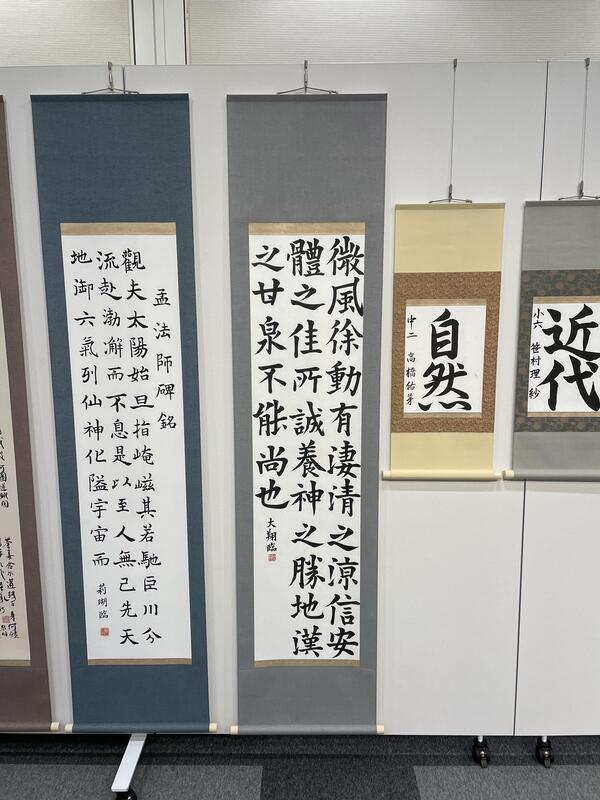 近代
小六 笹村理紗
自然
中二 高橋佑芽
微風徐動有淒清之涼信安
體之佳所誠養神之勝地漢
之甘泉不能尚也
大翔臨
孟法師碑銘
觀夫太陽始旦指崦嵫其若馳巨川分
流赴渤澥而不息是以至人無己先天
地御六氣列仙神化隘宇宙而
莉瑚臨